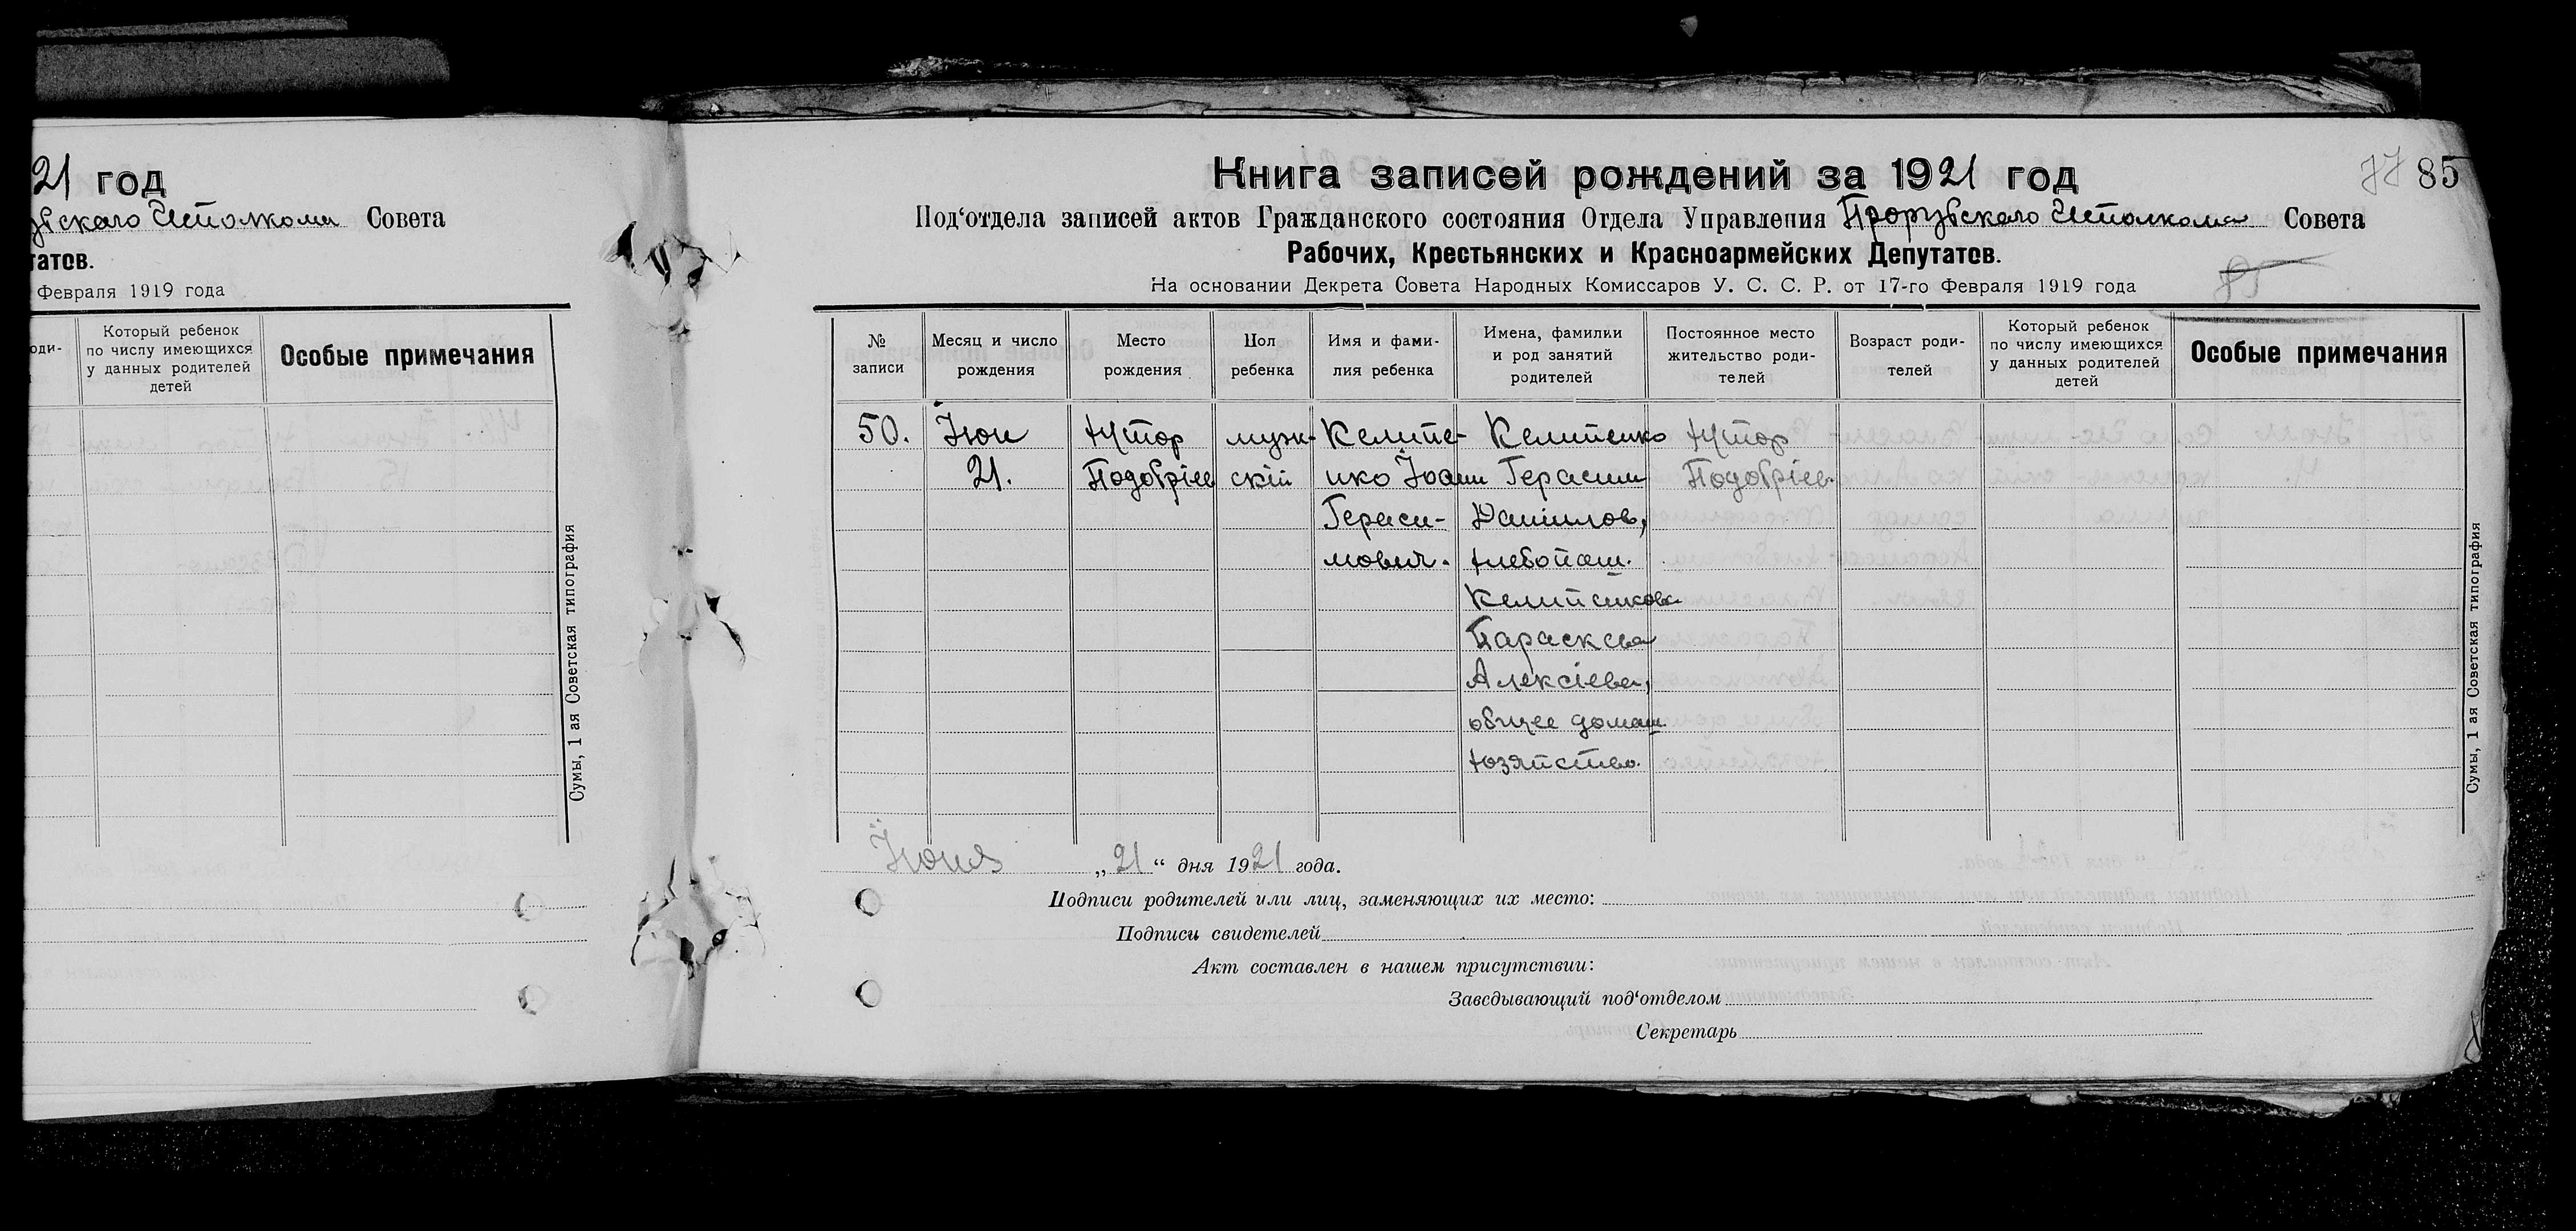 21 год
Исполкома Совета
татов.
Февраля 1919 года
оди-
Который ребенок
по числу имеющихся
у данных родителей
детей
Особые примечания
Сумы, 1 ая Советская типография
Книга записей рождений за 1921 год
85
Под‘отдела записей актов Гражданского состояния Отдела Управления Прорубскаго Исполкома Совета
Рабочих, Крестьянских и Красноармейских Депутатов.
На основании Декрета Совета Народных Комиссаров У. С. С. Р. от 17-го Февраля 1919 года
№ записи
Месяц и число рождения
Место рождения
Пол ребенка
Имя и фами-
лия ребенка
Имена, фамилии
и род занятий
родителей
Постоянное место
жительство роди-
телей
Возраст роди-
телей
Который ребенок
по числу имеющихся
у данных родителей
детей
Особые примечания
50. Іюн хутор муж- Келипе- Келипенко хутор
21. Подобріев скій нко Іоанн Герасим Подобріев.
Гераси- Данилов,
мович. хлебопаш.
Келипенкова
Параскева
Алексіева,
общее домаш.
хозяйство.
Июня „21“ дня 1921 года.
Подписи родителей или лиц, заменяющих их место:
Подписи свидетелей
Акт составлен в нашем присутствии:
Заведывающий под‘отделом
Секретарь
Сумы, 1 ая Советская типография